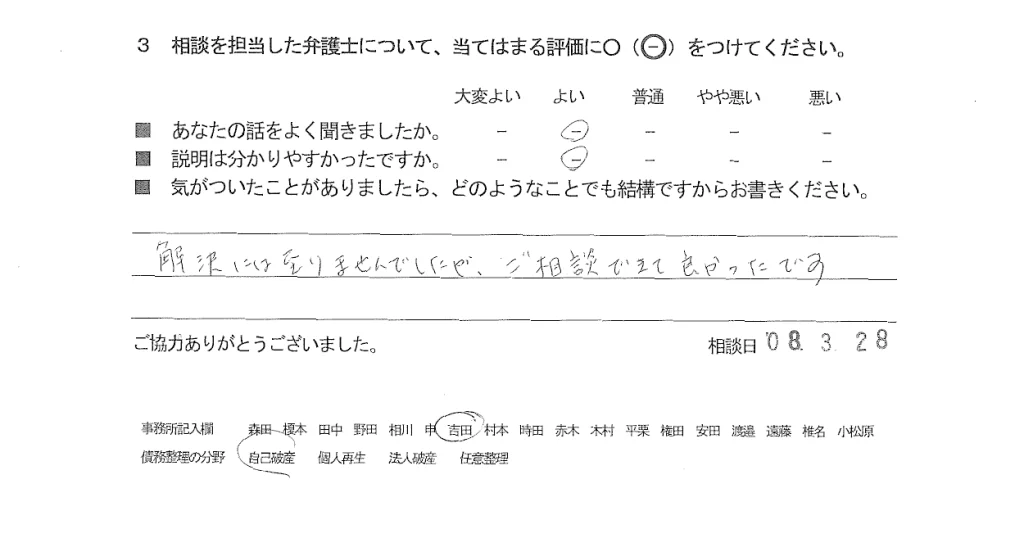 3 相談を担当した弁護士について、当てはまる評価に○（㊀）をつけてください。
大変よい よい 普通 やや悪い 悪い
■ あなたの話をよく聞きましたか。 － － － － －
■ 説明は分かりやすかったですか。 － － － － －
■ 気がついたことがありましたら、どのようなことでも結構ですからお書きください。
解決には至りませんでしたが、ご相談できて良かったです
ご協力ありがとうございました。 相談日 '08. 3. 28
事務所記入欄 森田 榎本 田中 野田 相川 申 吉田 村本 時田 赤木 木村 平栗 権田 安田 渡邉 遠藤 椎名 小松原
債務整理の分野 自己破産 個人再生 法人破産 任意整理